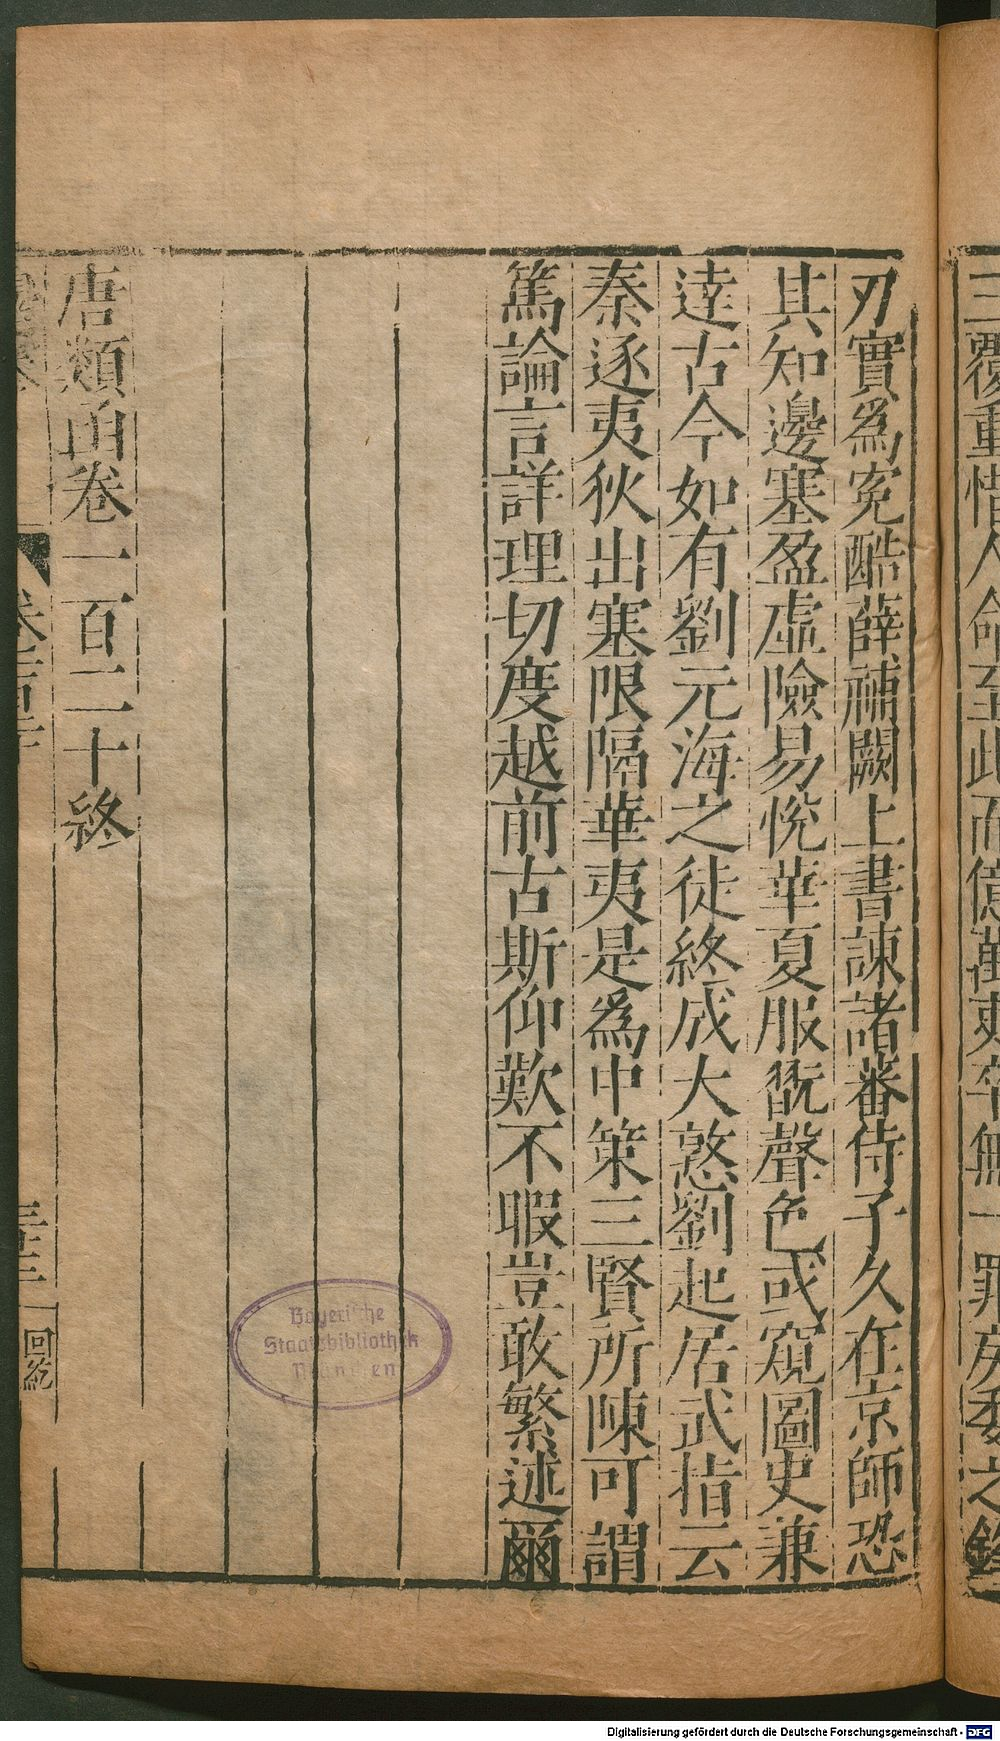 三覆重惜人命至此而億萬吏卒無一罪戾委之鋒
刃實爲寃酷薛補闕上書諫諸蕃侍子久在京師恐
其知邊塞盈虛險易悅華夏服翫聲色或窺圖史兼
達古今如有劉元海之徒終成大憝劉起居武指云
秦逐夷狄出塞限隔華夷是爲中策三賢所陳可謂
篤論言詳理切度越前古斯仰歎不暇豈敢繁述爾
唐類函卷一百二十終
卷一百二十
三十三
回紇
Bayerische
Staatsbibliothek
München
Digitalisierung gefördert durch die Deutsche Forschungsgemeinschaft - DFG